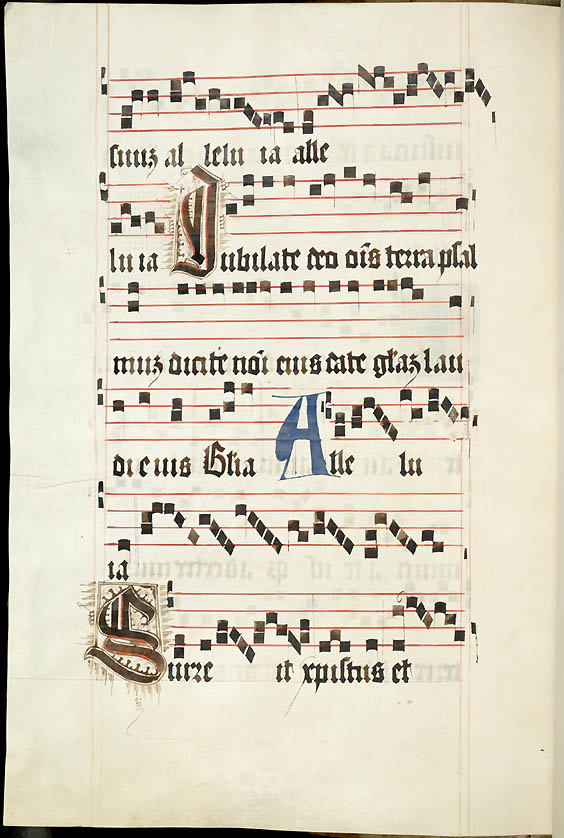 suuz al lelu ia alle
lu ia Jubilate deo oīs terra psal
muz dicite noi eius date glaz lau
di eius Glia Alle lu
ia
Surre it xpistus et